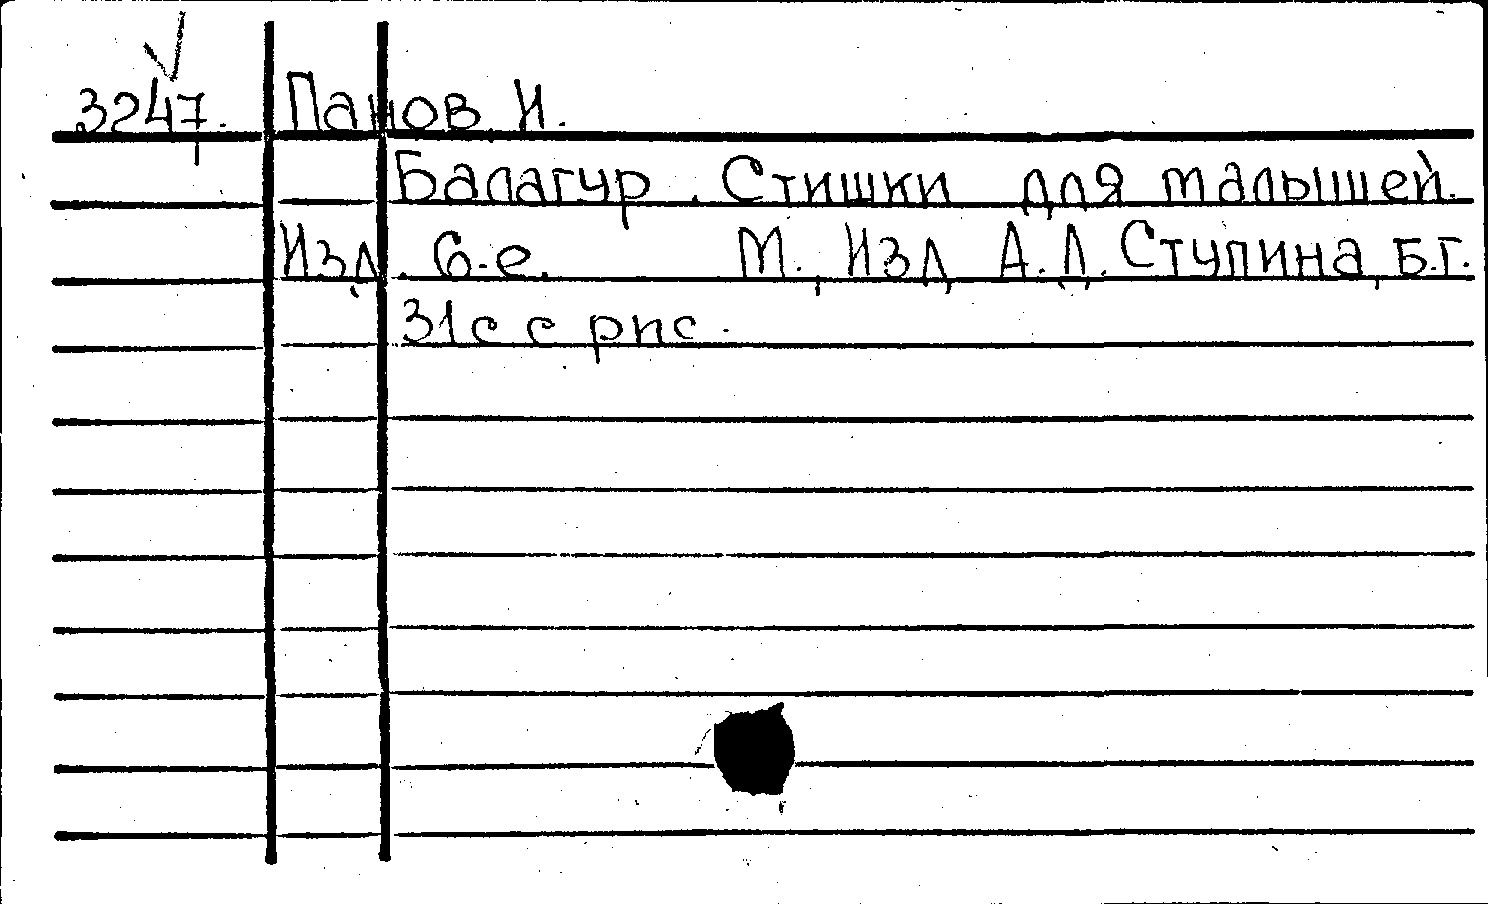 3247. Панов И.
Балагур. Стишки для малышей.
Изд. 6-е. М., Изд. А.Д. Ступина, б.г.
31с с рис.